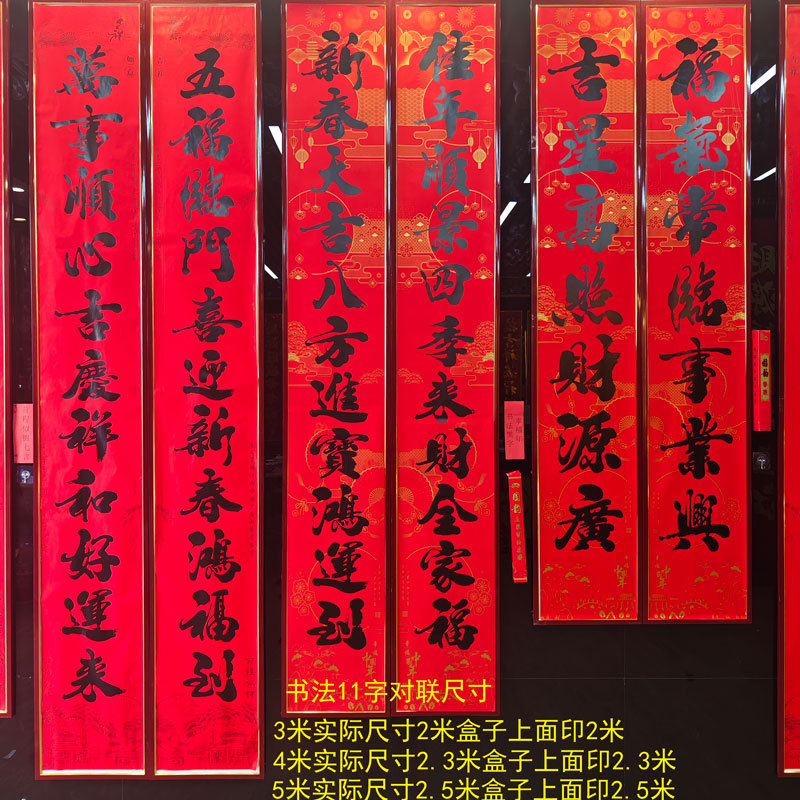 五福臨門喜迎新春鴻福到
萬事順心吉慶祥和好運来
佳年順景四季来財全家福
新春大吉八方進寶鴻運到
福氣常臨事業興
吉星高照財源廣
吉祥
如意
幸福年
书法黑字
书法11字对联尺寸
3米实际尺寸2米盒子上面印2米
4米实际尺寸2.3米盒子上面印2.3米
5米实际尺寸2.5米盒子上面印2.5米